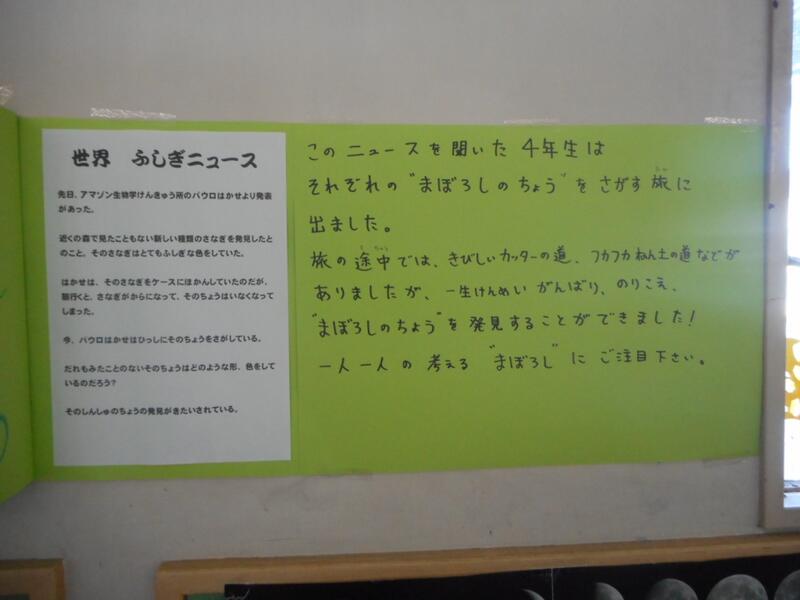 世界 ふしぎニュース
先日、アマゾン生物学けんきゅう所のパウロはかせより発表
があった。
近くの森で見たこともない新しい種類のさなぎを発見したと
のこと。そのさなぎはとてもふしぎな色をしていた。
はかせは、そのさなぎをケースにほかんしていたのだが、
朝行くと、さなぎがからになって、そのちょうはいなくなって
しまった。
今、パウロはかせはひっしにそのちょうをさがしている。
だれもみたことのないそのちょうはどのような形、色をして
いるのだろう?
そのしんしゅのちょうの発見がきたいされている。
このニュースを聞いた4年生は
それぞれの"まぼろしのちょう"をさがす旅に
出ました。
旅の途中では、きびしいカッターの道、フカフカねん土の道などが
ありましたが、一生けんめいがんばり、のりこえ、
"まぼろしのちょう"を発見することができました!
一人一人の考える"まぼろし"にご注目下さい。